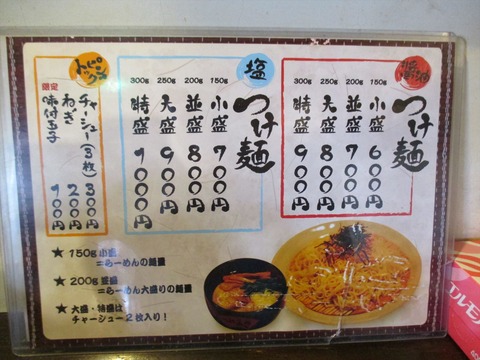 醤油
つけ麺
150g 小盛 600円
200g 並盛 700円
250g 大盛 800円
300g 特盛 900円
塩
つけ麺
150g 小盛 700円
200g 並盛 800円
250g 大盛 900円
300g 特盛 1000円
トッピング
チャーシュー(3枚) 300円
ねぎ 200円
限定 味付玉子 100円
★ 150g 小盛
=らーめんの麺量
★ 200g 並盛
=らーめん大盛りの麺量
★ 大盛・特盛は
チャーシュー2枚入り!
エルモ